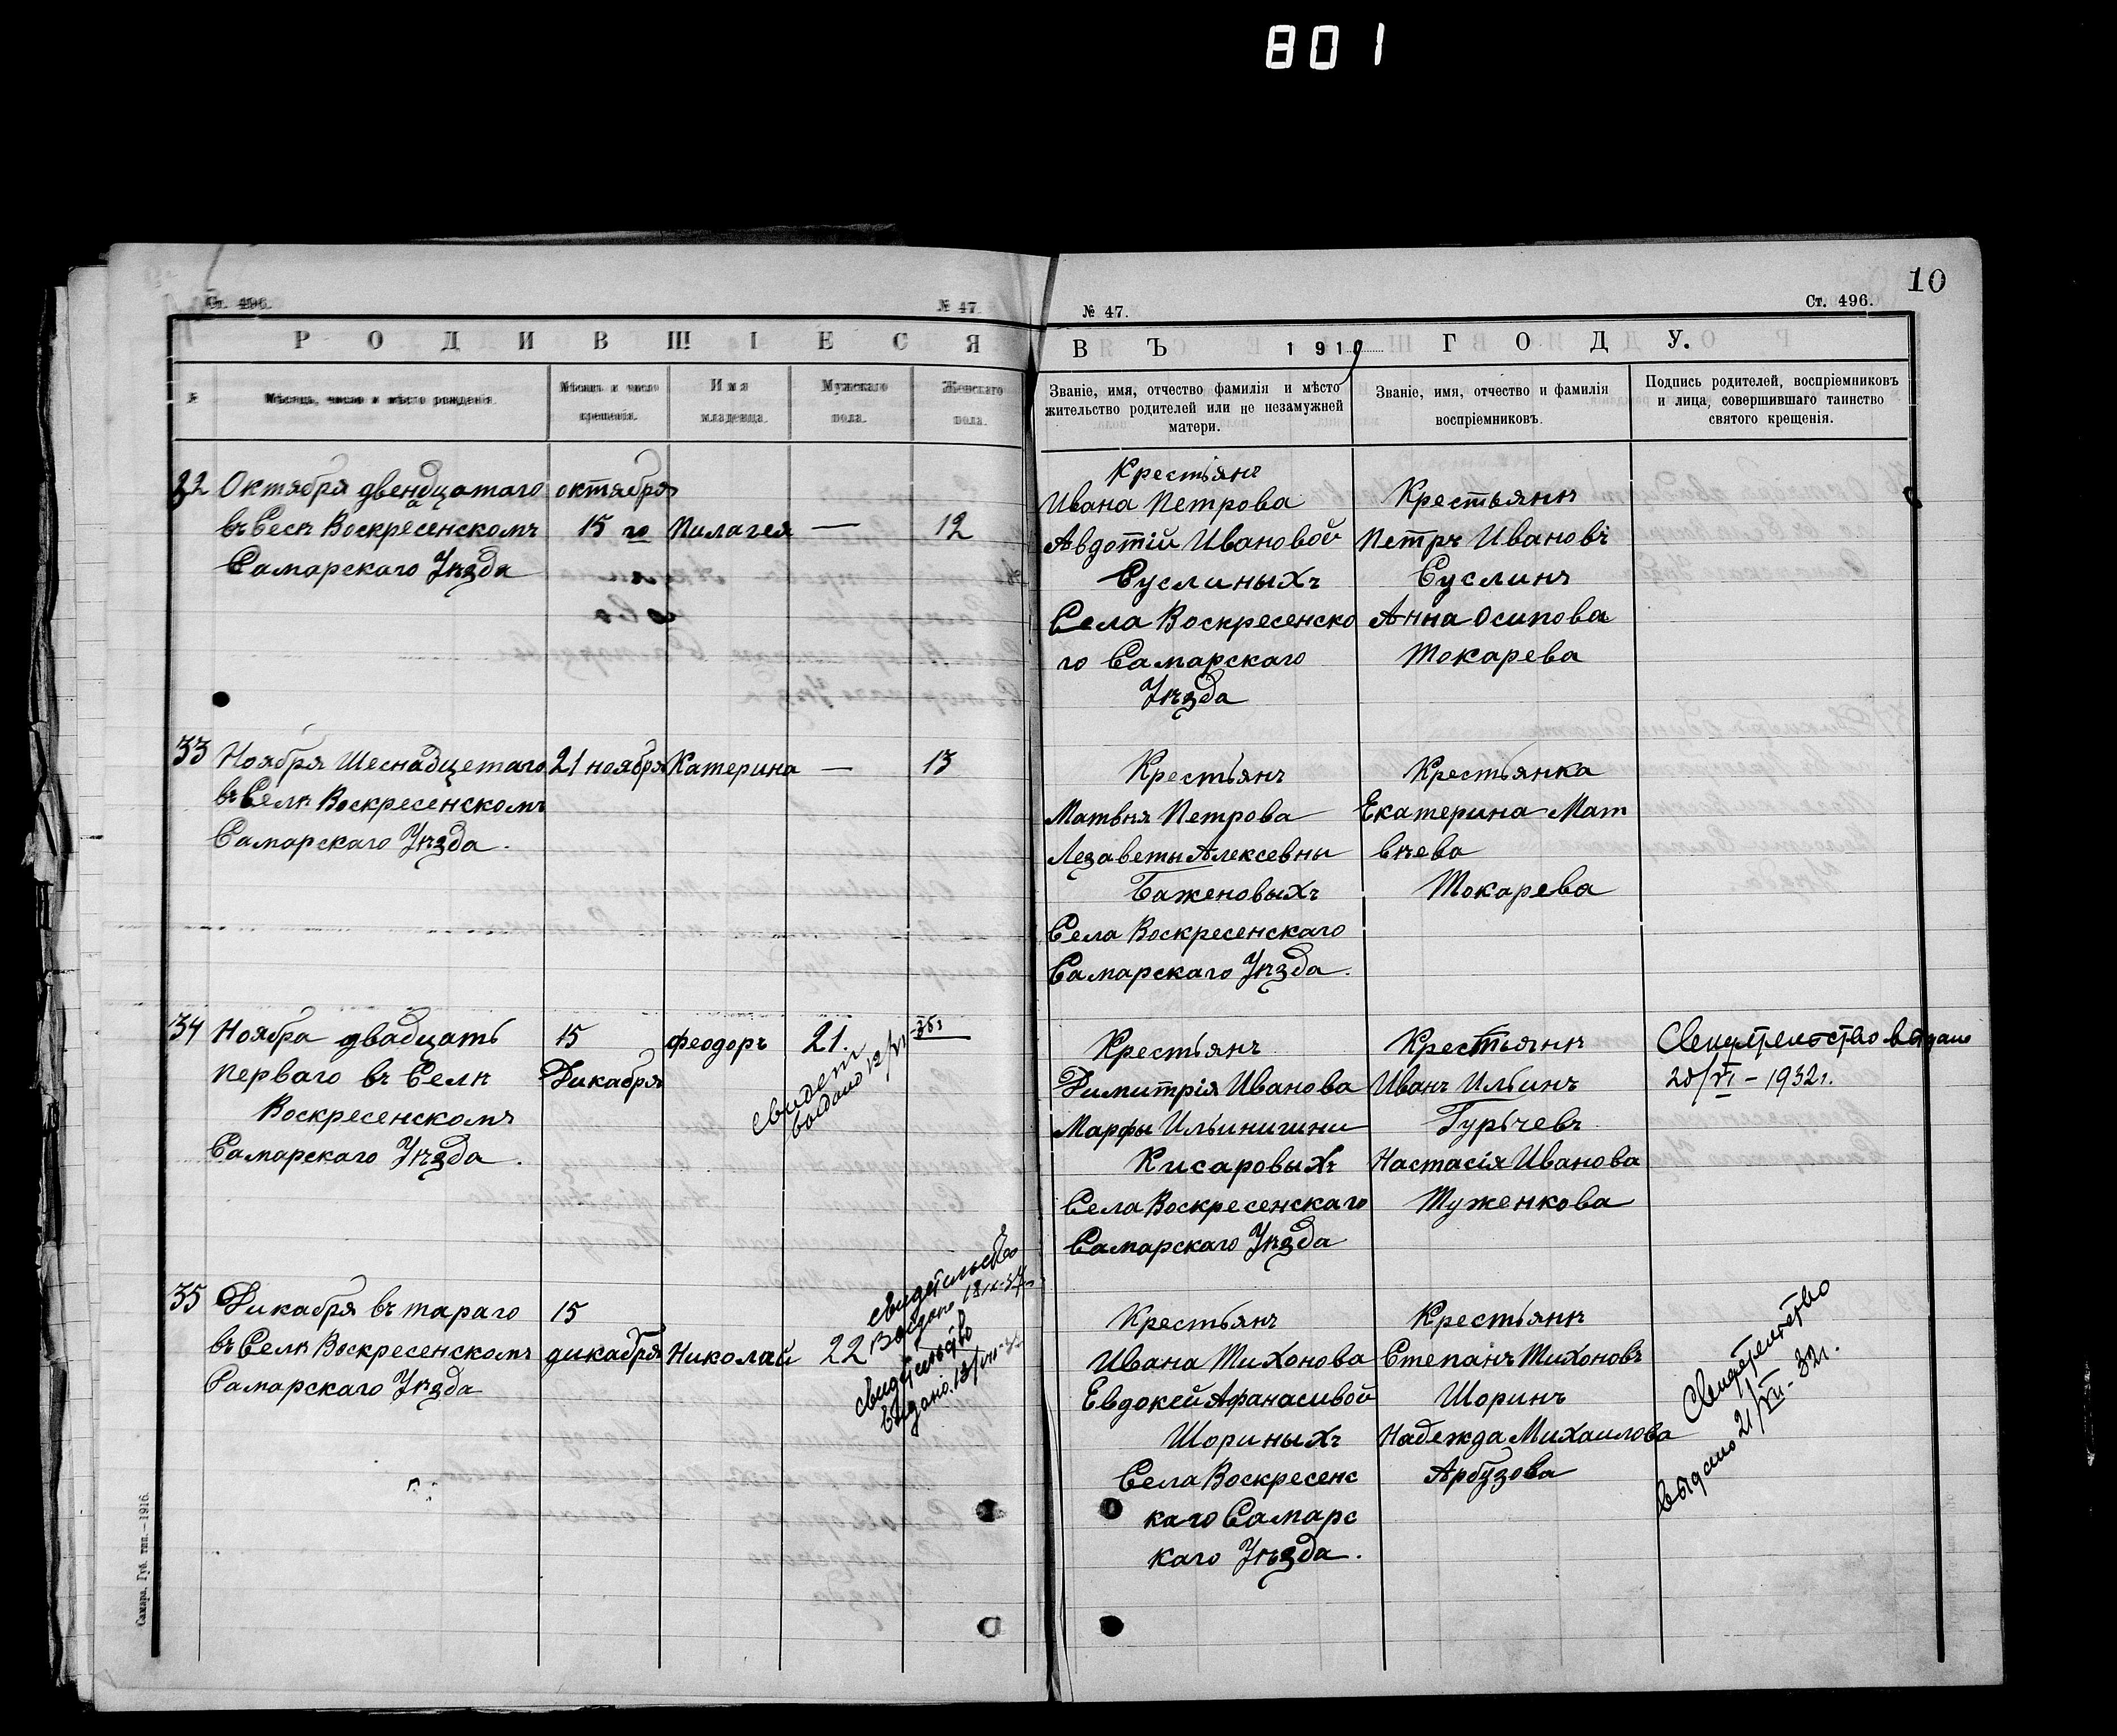 801
10
Ст. 496.
№ 47.
№ 47.
Ст. 496.
РОДИВШІЕСЯ
ВЪ 1919 ГОДУ.
№
Мѣсяцъ, число и мѣсто рожденія.
Мѣсяцъ и число
крещенія.
Имя
младенца.
Мужскаго
пола.
Женскаго
пола.
Званіе, имя, отчество фамилія и мѣсто
жительство родителей или не незамужней
матери.
Званіе, имя, отчество и фамилія
воспріемниковъ.
Подпись родителей, воспріемниковъ
и лица, совершившаго таинство
святого крещенія.
32
Октября двенадцатаго
въ Весѣ Воскресенскомъ
Самарскаго Уѣзда
октября
15 го
Пилагея
—
12
Крестіянъ
Ивана Петрова
Авдотій Ивановой
Суслиныхъ
Села Воскресенско
го Самарскаго
Уѣзда
Крестьянѣ
Петръ Ивановъ
Суслинъ
Анна Осипова
Токарева
33
Ноября Шеснадцетаго
въ Селѣ Воскресенскомъ
Самарскаго Уѣзда.
21 ноября
Катерина
—
13
Крестьянъ
Матвѣя Петрова
Лезаветы Алексевны
Баженовыхъ
Села Воскресенскаго
Самарскаго Уѣзда.
Крестьянка
Екатерина Мат
вѣева
Токарева
34
Ноября двадцать
перваго въ Селѣ
Воскресенскомъ
Самарскаго Уѣзда.
15
Дикабря
Феодоръ
21.
Крестьянъ
Димитрія Иванова
Марфы Ильинишни
Кисаровыхъ
Села Воскресенскаго
Самарскаго Уѣзда
Крестьянѣ
Иванъ Ильинъ
Гурьчевъ
Настасія Иванова
Туженкова
Свидетельство выдано
20/VI – 1932г.
35
Дикабря втараго
въ Селѣ Воскресенскомъ
Самарскаго Уѣзда
15
дикабря
Николай
22
свидетельство
Выдано
свидетельство
Выдано
Крестьянъ
Ивана Тихонова
Евдокей Афанасивой
Шориныхъ
Села Воскресенс
каго Самарс
каго Уѣзда.
Крестьянѣ
Степанъ Тихоновъ
Шоринъ
Надежда Михаилова
Арбузова
Свидетельство
выдано 21/VII - 32г.
Самара, Губ. тип.—1916.